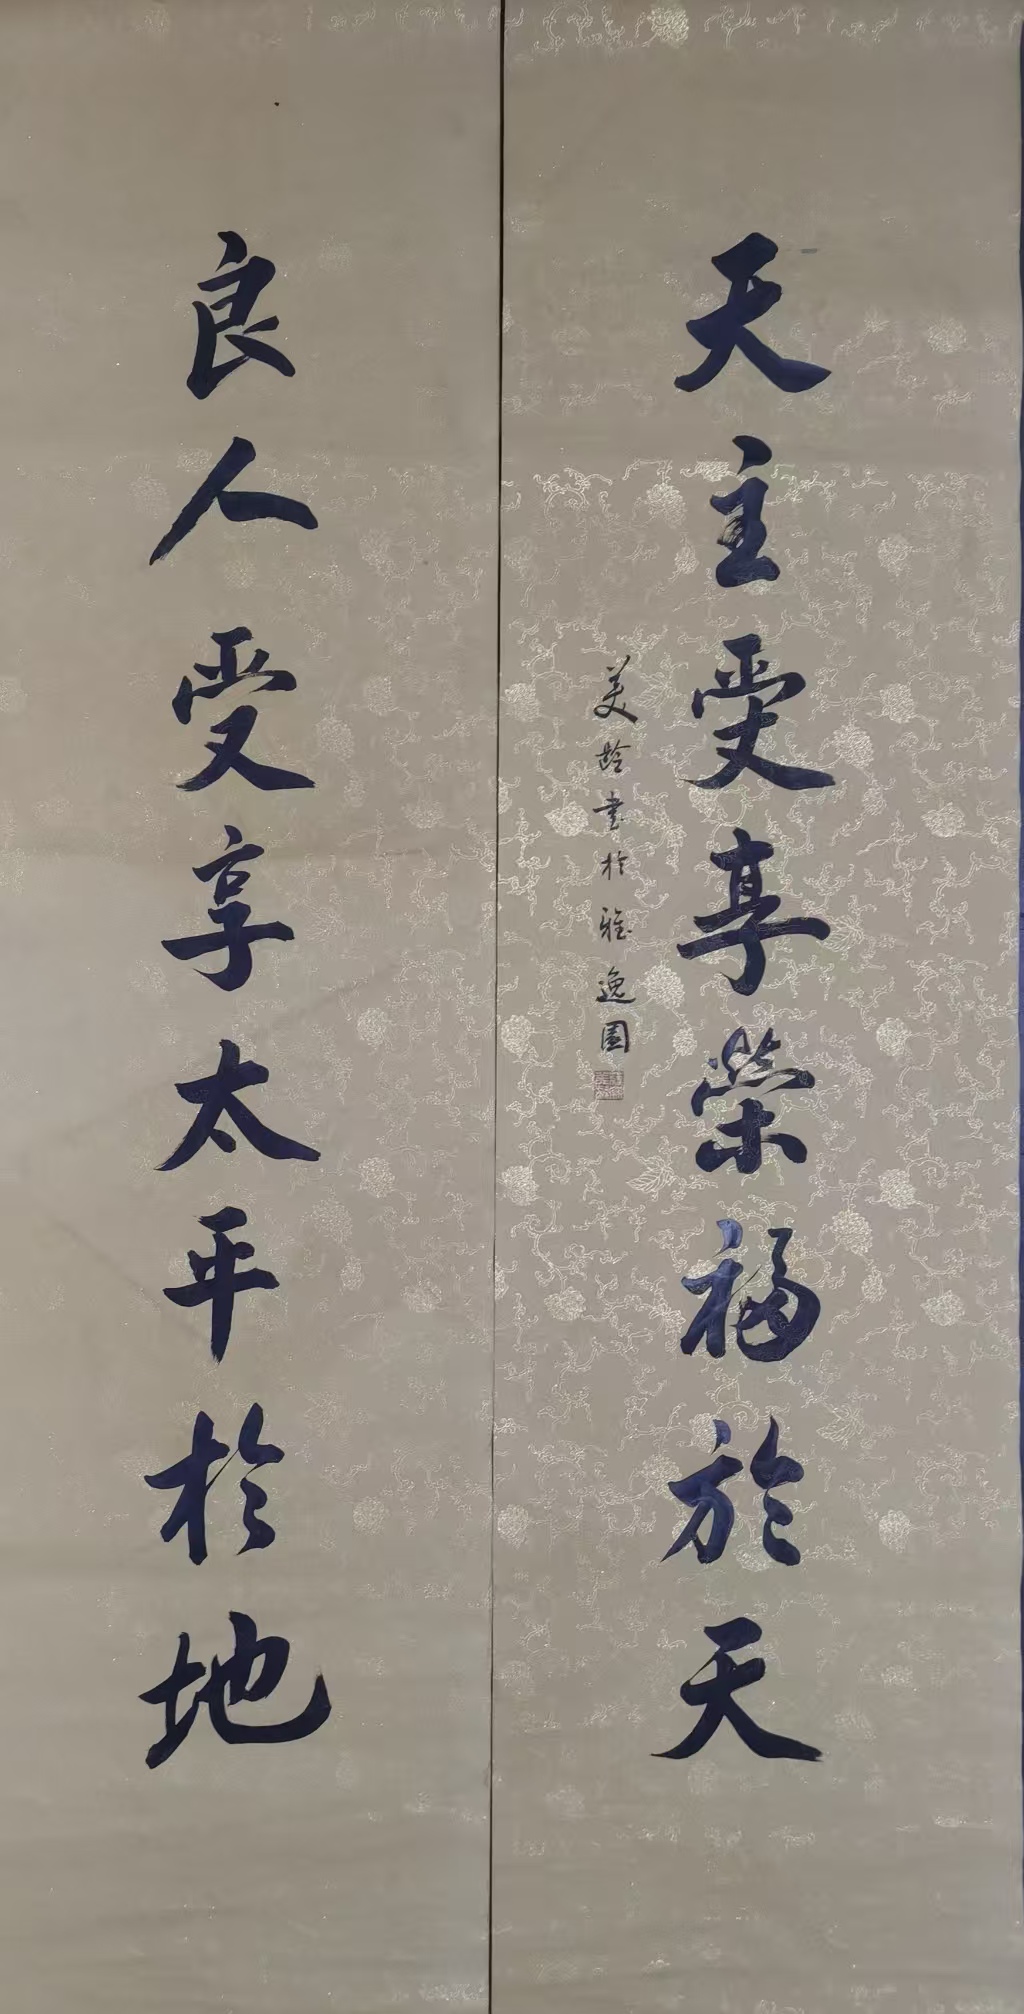 天主受享荣福於天
美龄书於雅逸园
良人受享太平於地